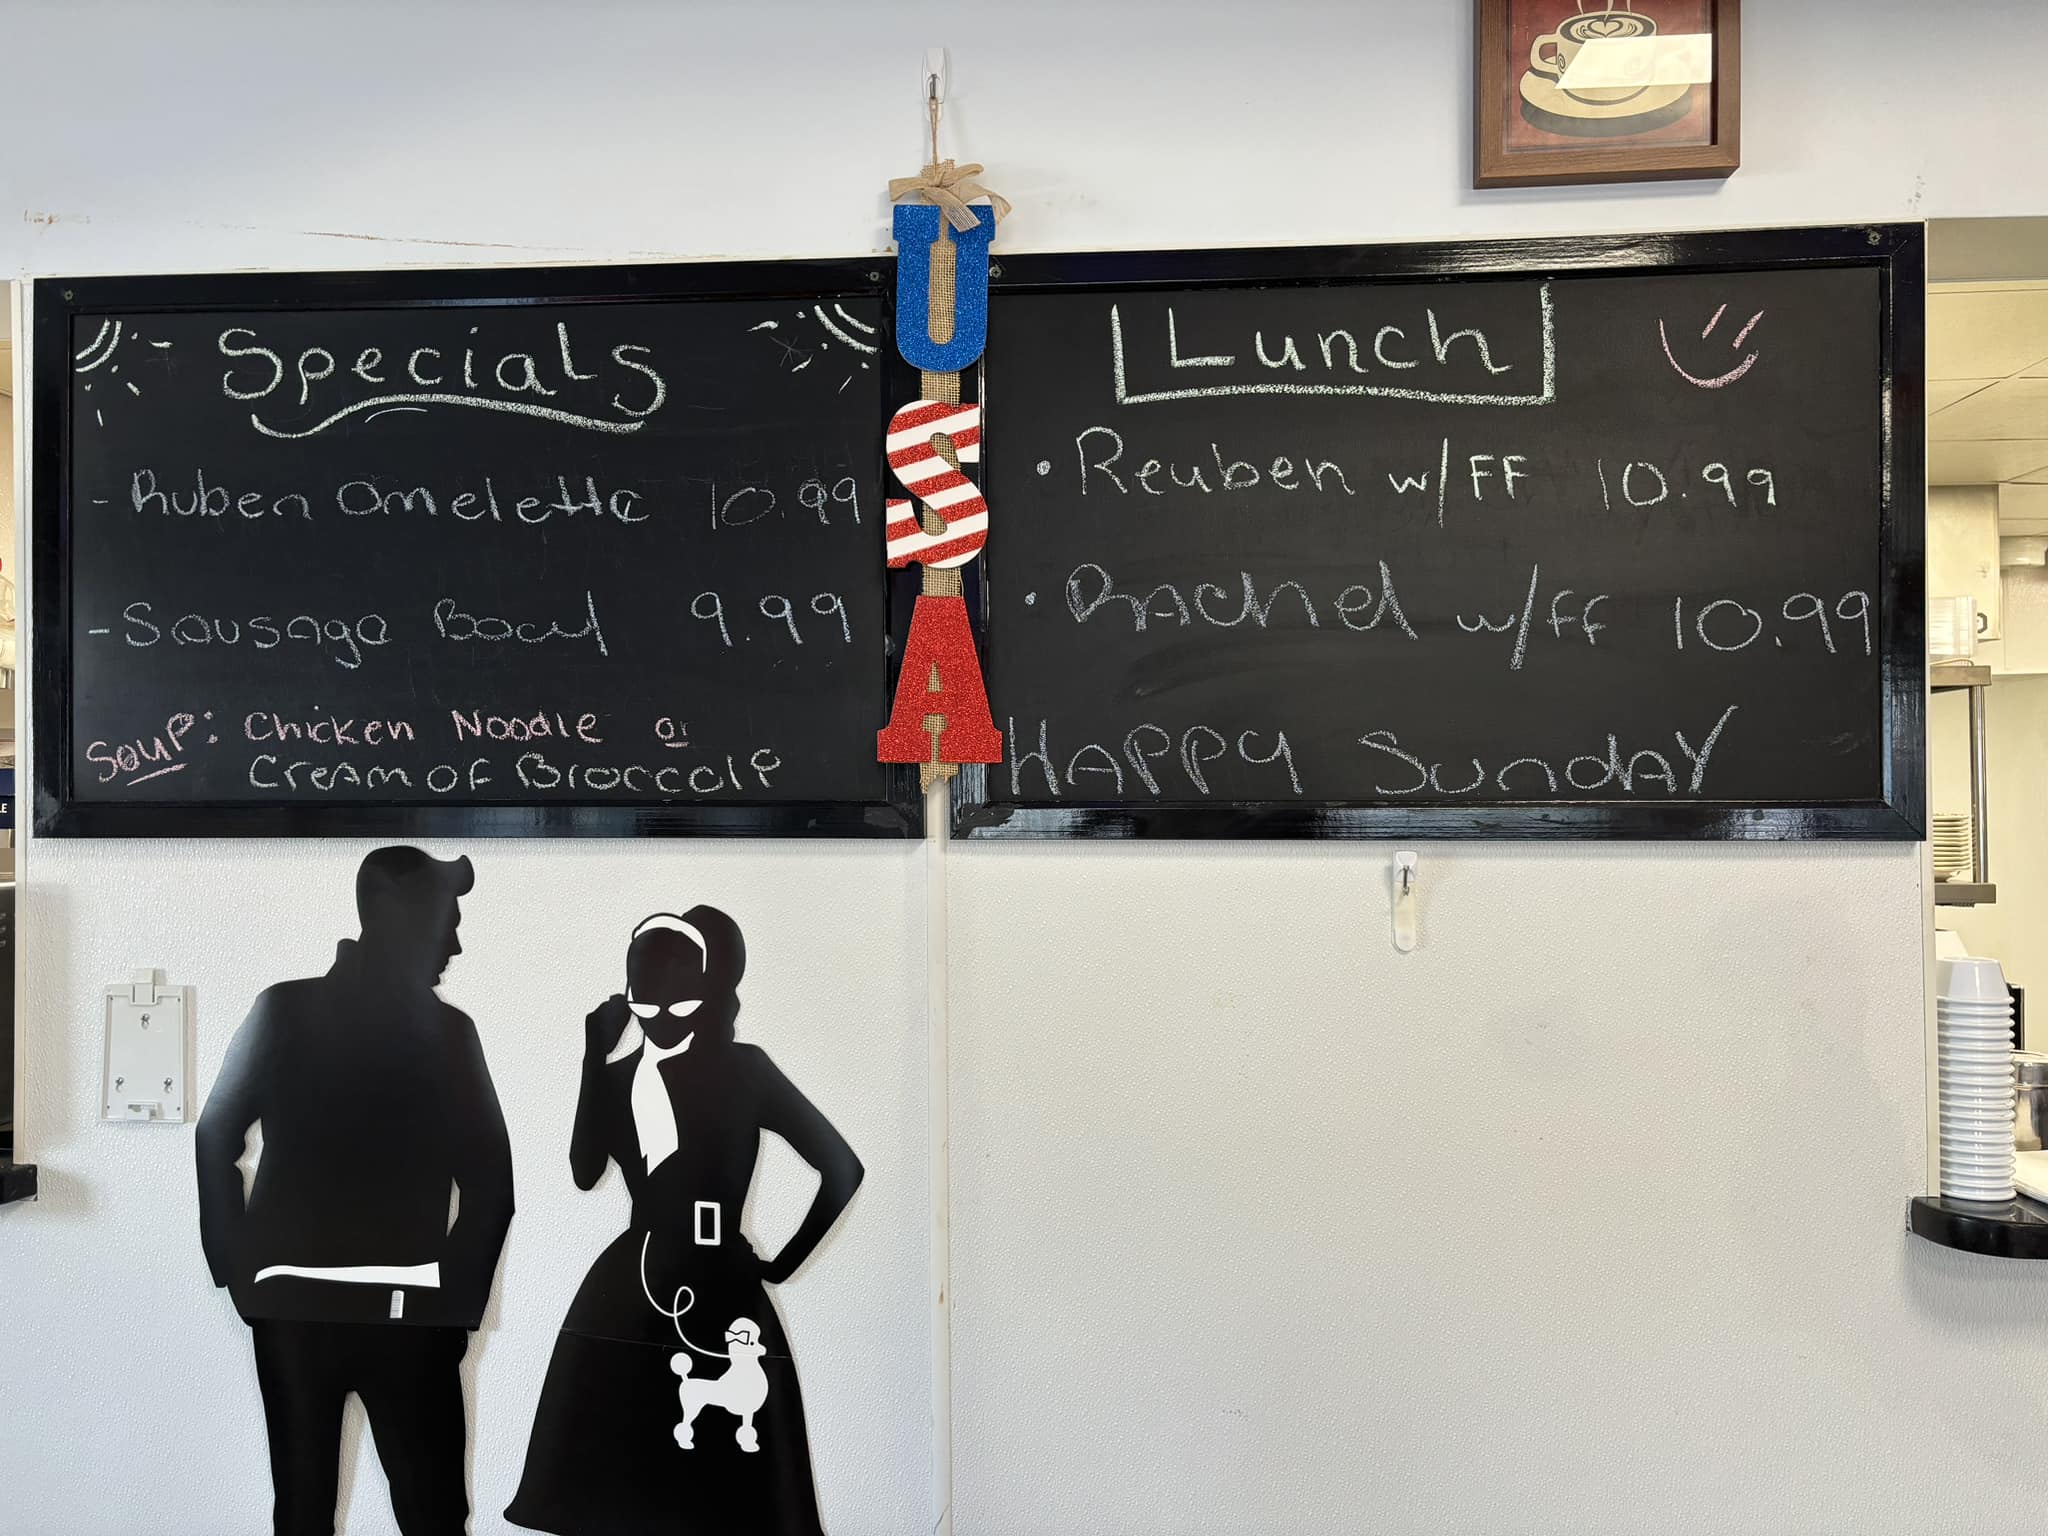 Specials
- Ruben Omelette 10.99
- Sausage Bowl 9.99
Soup: Chicken Noodle or
Cream of Broccoli
USA
Lunch
• Reuben w/FF 10.99
• Rachel w/FF 10.99
HAPPY SundAY